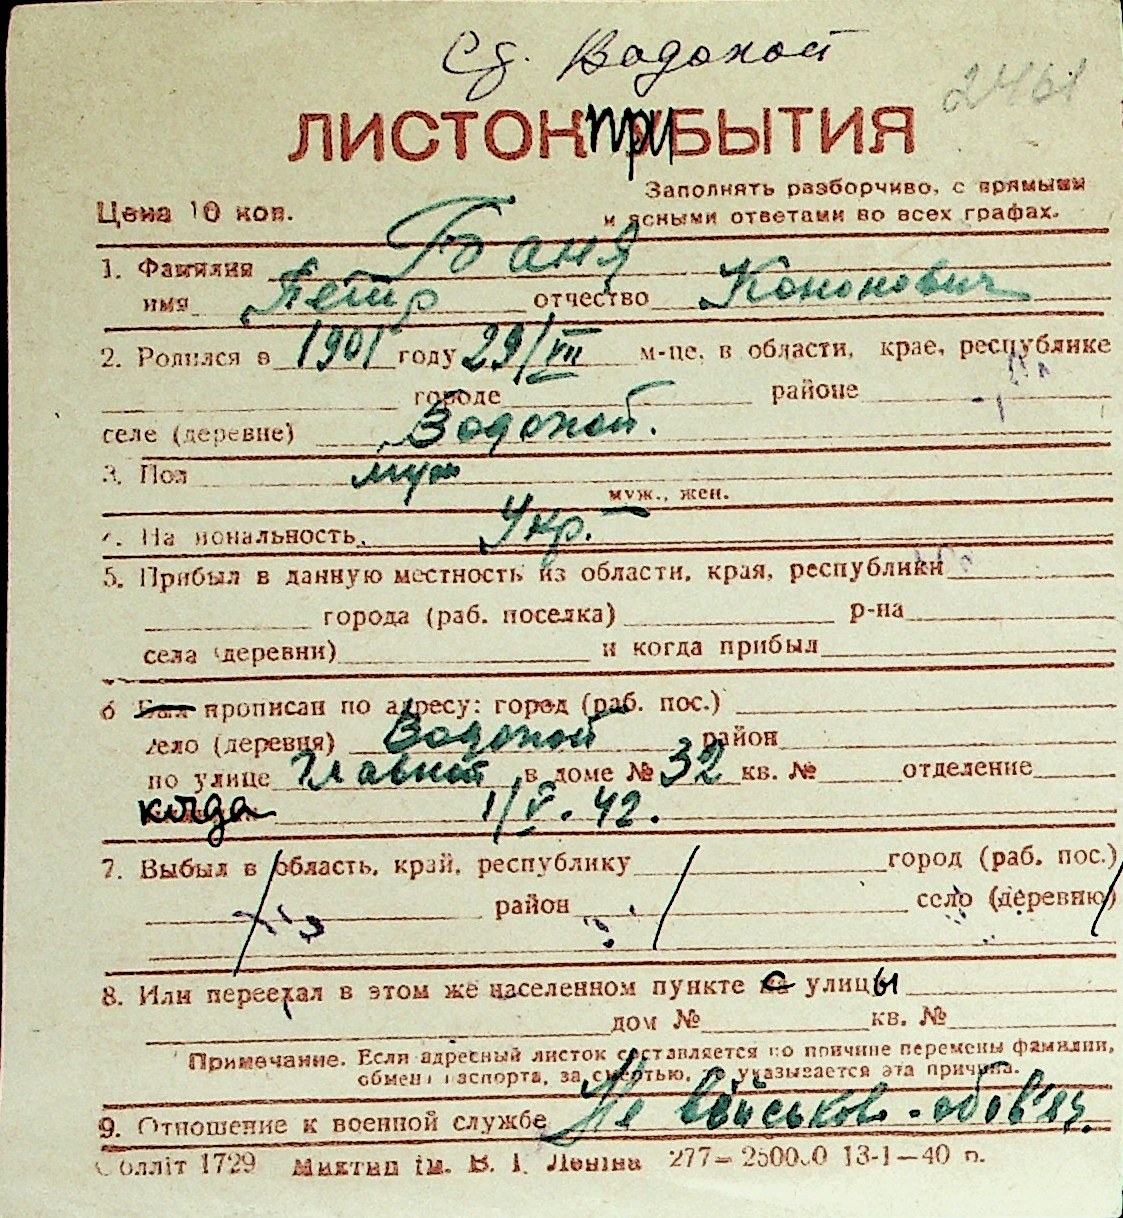 Сд. Водопой
2461
ЛИСТОК ПРИБЫТИЯ
Заполнять разборчиво, с прямыми
Цена 10 коп. и ясными ответами во всех графах.
1. Фамилия Баня
имя Петир отчество Кононович
2. Родился в 1901 году 29/VII м-це, в области, крае, республике
городе районе
селе (деревне) Водопой.
3. Пол муж
муж., жен.
4. Национальность Укр.
5. Прибыл в данную местность из области, края, республики
города (раб. поселка) р-на
села (деревни) и когда прибыл
6 Был прописан по адресу: город (раб. пос.)
село (деревня) Водопой район
по улице Главной в доме № 32 кв. № отделение
когда 1/V. 42.
7. Выбыл в область, край, республику город (раб. пос.)
район село (деревню)
8. Или переехал в этом же населенном пункте с улицы
дом № кв. №
Примечание. Если адресный листок составляется по причине перемены фамилии,
обмена паспорта, за смертью, указывается эта причина.
9. Отношение к военной службе Не військов-обов'яз.
Облліт 1729 Миктип ім. В. І. Леніна 277— 250000 13-1—40 р.